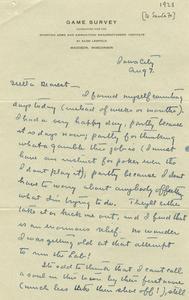 1928
[to Santa Fe]
GAME SURVEY
CONDUCTED FOR THE
SPORTING ARMS AND AMMUNITION MANUFACTURERS' INSTITUTE
BY ALDO LEOPOLD
MADISON, WISCONSIN
Iowa City
Aug 7.
Dearest —
I found myself counting
days today (instead of weeks or months).
I had a very happy day, partly because
it so dizzy now, partly for thinking
what a gamble this job is (I must
have an instinct for poker even tho
I don't play it), partly because I don't
have to worry about anybody
what I'm trying to do. They'll either
take it or kick me out, and I find that
is an enormous relief. No wonder
I was getting old at that attempt
to run the Lab!
It's odd to think that I can't call
a soul in this town by their first name
(much less take their shoe off!), still